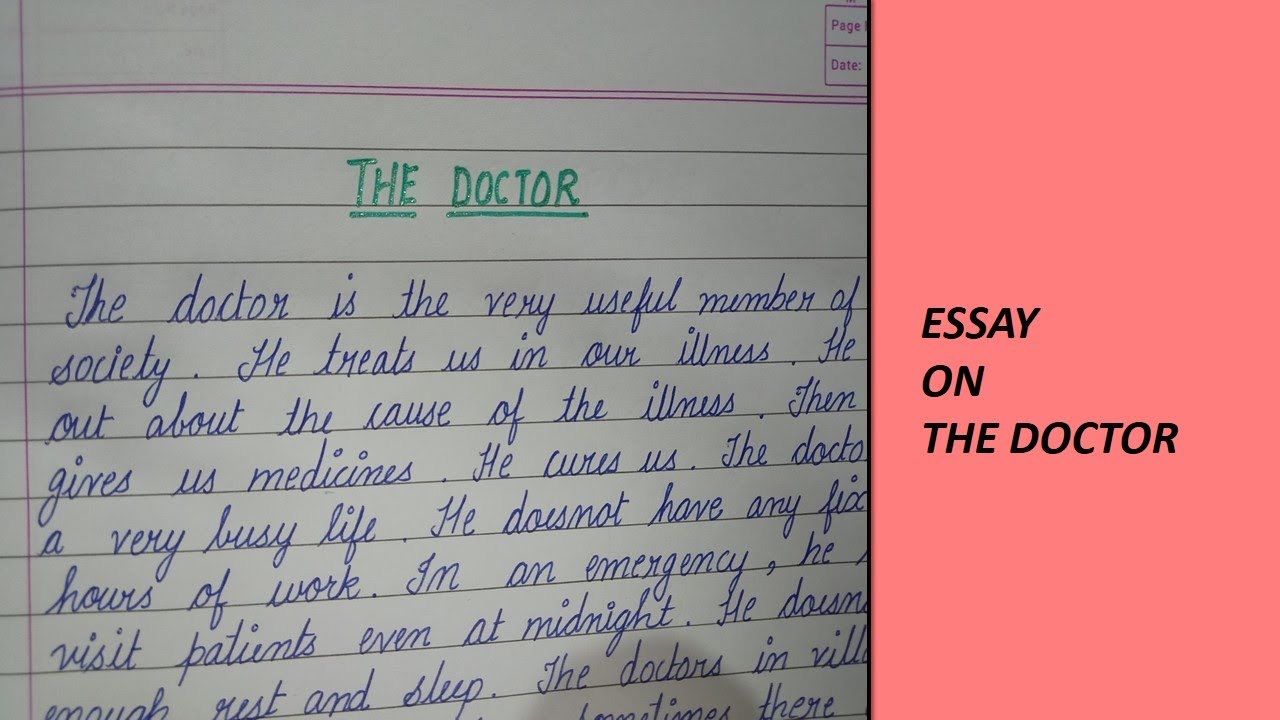 Page
Date:
THE DOCTOR
The doctor is the very useful member of
society. He treats us in our illness. He
out about the cause of the illness. Then
gives us medicines. He cures us. The docto
a very busy life. He doesnot have any fix
hours of work. In an emergency, he
visit patients even at midnight. He doesn
enough rest and sleep. The doctors in vill
sometimes there
ESSAY
ON
THE DOCTOR